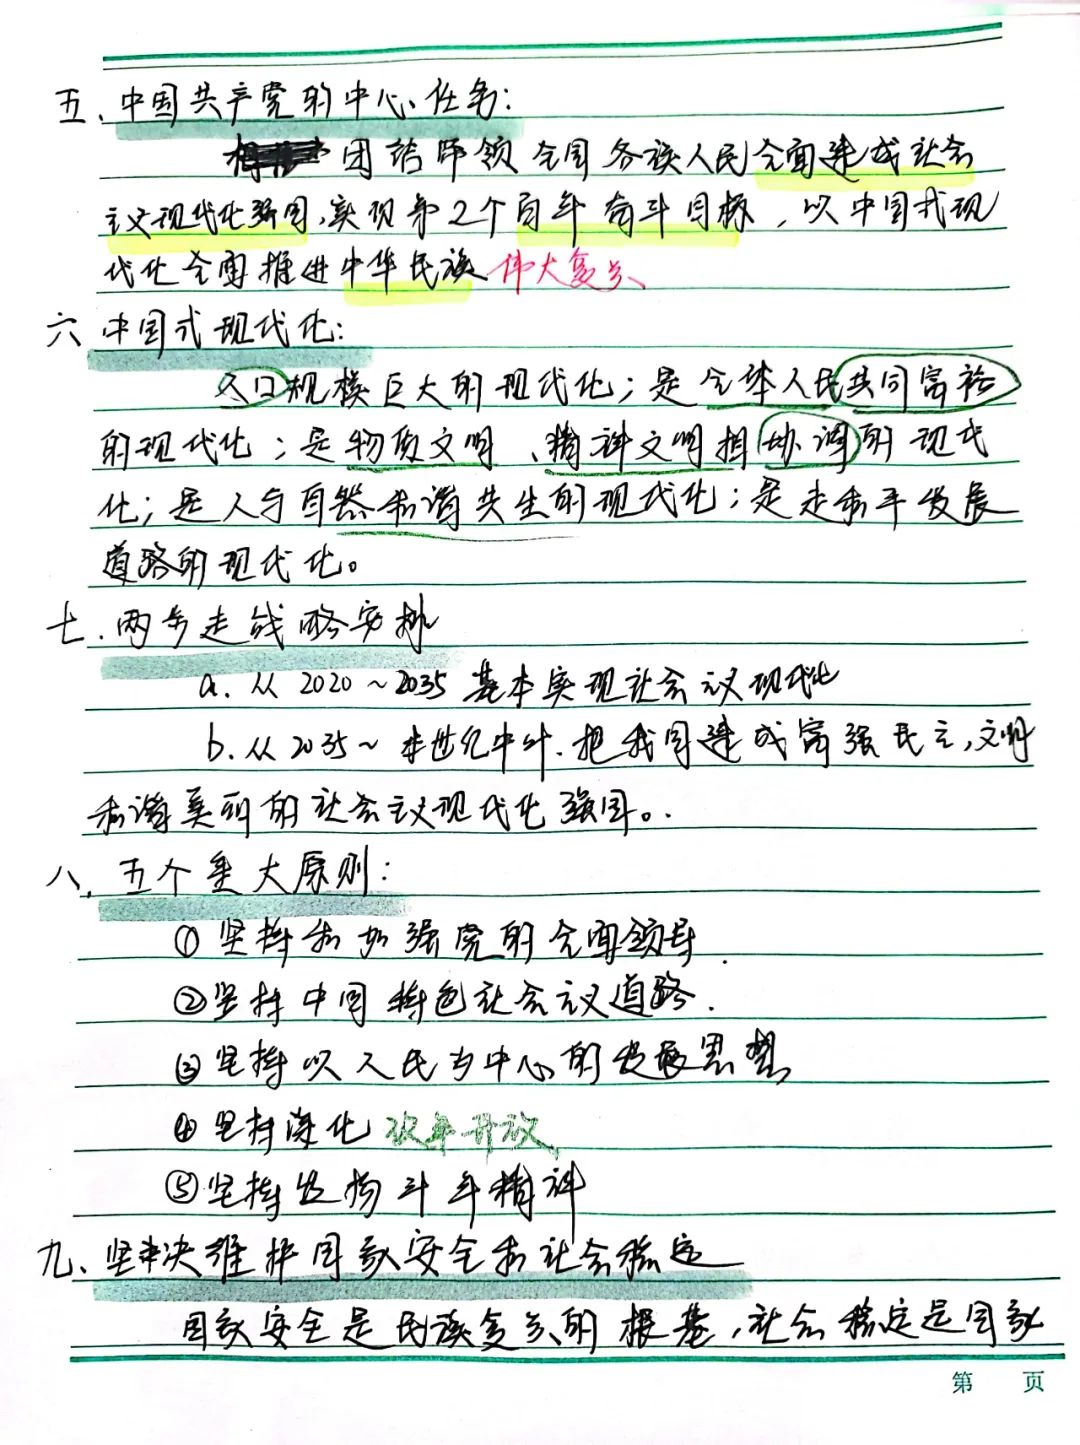 五、中国共产党的中心任务：
团结带领全国各族人民全面建成社会
主义现代化强国，实现第2个百年奋斗目标，以中国式现
代化全面推进中华民族伟大复兴
六 中国式现代化：
人口规模巨大的现代化；是全体人民共同富裕
的现代化；是物质文明、精神文明相协调的现代
化；是人与自然和谐共生的现代化；是走和平发展
道路的现代化。
七.两步走战略安排
a.从2020~2035基本实现社会主义现代化
b.从2035~本世纪中叶.把我国建成富强民主,文明
和谐美丽的社会主义现代化强国。.
八、五个重大原则：
①坚持和加强党的全面领导.
②坚持中国特色社会主义道路.
③坚持以人民为中心的发展思想
④坚持深化改革开放、
⑤坚持发扬斗争精神
九、坚决维护国家安全和社会稳定
国家安全是民族复兴的根基，社会稳定是国家
第 页